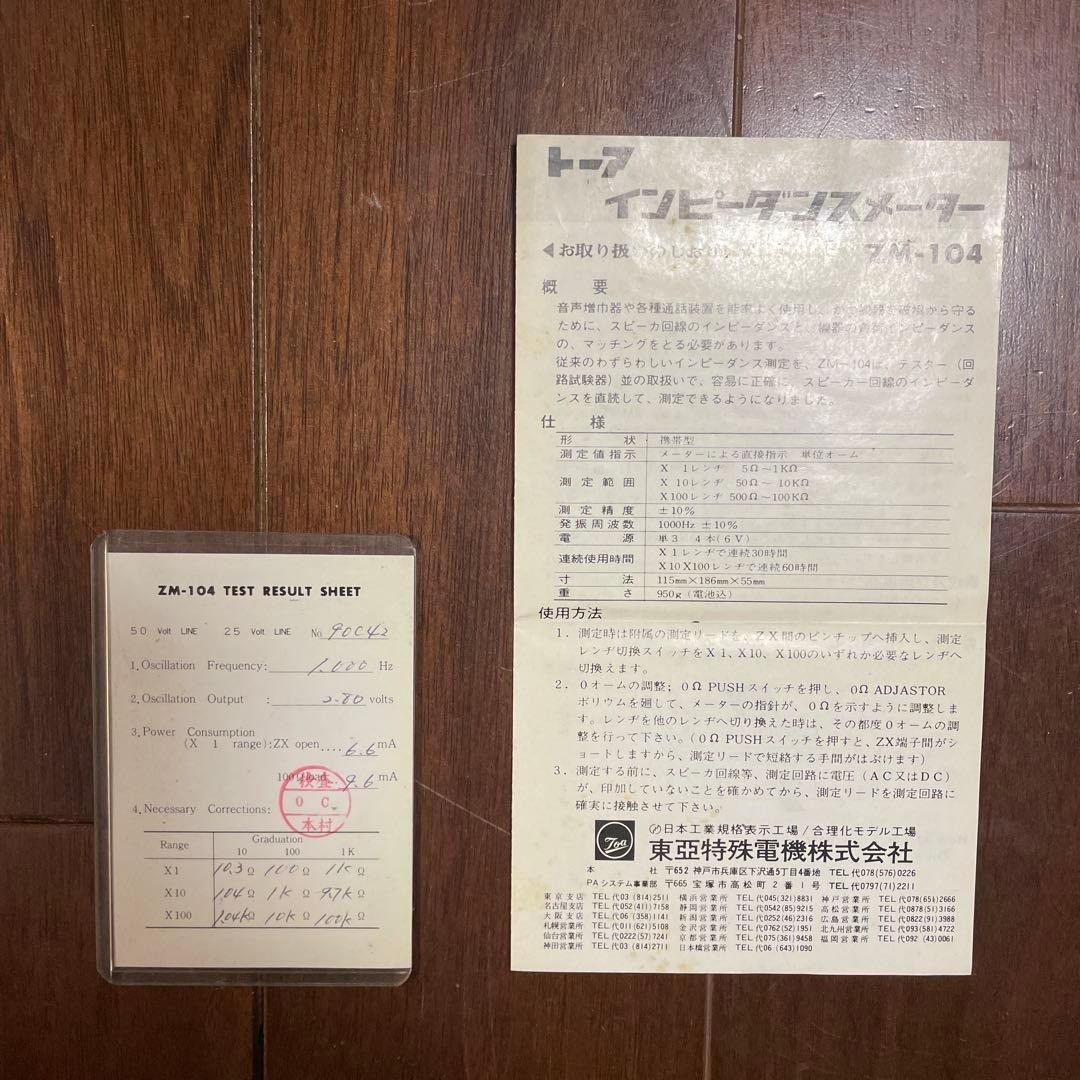 ZM-104 TEST RESULT SHEET
50 Volt LINE 25 Volt LINE No. 90C42
1. Oscillation Frequency: 1,000 Hz
2. Oscillation Output : 2.80 volts
3. Power Consumption
(X 1 range): ZX open.... 6.6 mA
100Ω load... 9.6 mA
4. Necessary Corrections:
検査
O C.
本村
Range Graduation
10 100 1K
X1 10.3 Ω 100 Ω 1K Ω
X10 104 Ω 1K Ω 9.7K Ω
X100 1.04K Ω 10K Ω 100K Ω
トーア
インピーダンスメーター
◀お取り扱いのしおり ZM-104
概 要
音声増巾器や各種通話装置を能率よく使用し、かつ機器を破損から守る
ために、スピーカ回線のインピーダンスと、機器の負荷インピーダンス
の、マッチングをとる必要があります。
従来のわずらわしいインピーダンス測定を、ZM-104は、テスター(回
路試験器)並の取扱いで、容易に正確に、スピーカー回線のインピーダ
ンスを直読して、測定できるようになりました。
仕 様
形 状 携帯型
測定値指示 メーターによる直接指示 単位オーム
測定範囲 X 1レンヂ 5Ω~1KΩ
X 10レンヂ 50Ω~10KΩ
X100レンヂ 500Ω~100KΩ
測定精度 ±10%
発振周波数 1000Hz ±10%
電 源 単3 4本(6V)
連続使用時間 X1レンヂで連続30時間
X10 X100レンヂで連続60時間
寸 法 115mm×186mm×55mm
重 さ 950g(電池込)
使用方法
1. 測定時は附属の測定リードを、ZX間のピンチップへ挿入し、測定
レンヂ切換スイッチをX1、X10、X100のいずれか必要なレンヂへ
切換えます。
2. 0オームの調整;0Ω PUSHスイッチを押し、0Ω ADJASTOR
ボリウムを廻して、メーターの指針が、0Ωを示すように調整しま
す。レンヂを他のレンヂへ切り換えた時は、その都度0オームの調
整を行って下さい。(0Ω PUSHスイッチを押すと、ZX端子間がシ
ョートしますから、測定リードで短絡する手間がはぶけます)
3. 測定する前に、スピーカ回線等、測定回路に電圧(AC又はDC)
が、印加していないことを確かめてから、測定リードを測定回路に
確実に接触させて下さい。
Toa
日本工業規格表示工場/合理化モデル工場
東亞特殊電機株式会社
本 社 〒652 神戸市兵庫区下沢通5丁目4番地 TEL代078(576)0226
PAシステム事業部 〒665 宝塚市高松町2番1号 TEL代0797(71)2211
東京支店 TEL代03(814)2511 横浜営業所 TEL代045(321)8831 神戸営業所 TEL代078(651)2666
名古屋支店 TEL代052(411)7158 静岡営業所 TEL代0542(85)9215 高松営業所 TEL代0878(51)3166
大阪支店 TEL代06(358)1141 新潟営業所 TEL代0252(46)2316 広島営業所 TEL代0822(91)3988
札幌営業所 TEL代011(621)5108 金沢営業所 TEL代0762(52)1951 北九州営業所 TEL代093(581)4722
仙台営業所 TEL代0222(57)7241 京都営業所 TEL代075(361)9458 福岡営業所 TEL代092(43)0061
神田営業所 TEL代03(814)2711 日本橋営業所 TEL代06(643)1090